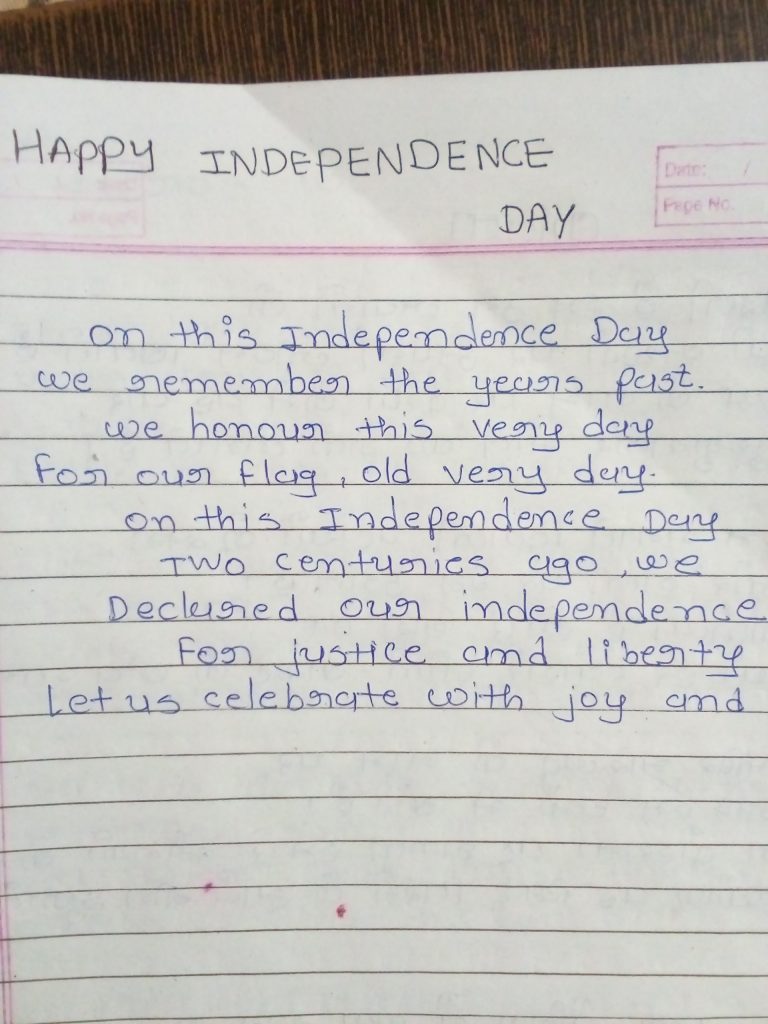 HAPPY INDEPENDENCE
DAY
Date: /
Page No.
on this Independence Day
we remember the years past.
we honour this very day
for our flag, old very day.
on this Independence Day
Two centuries ago, we
Declared our independence
for justice and liberty
Let us celebrate with joy and